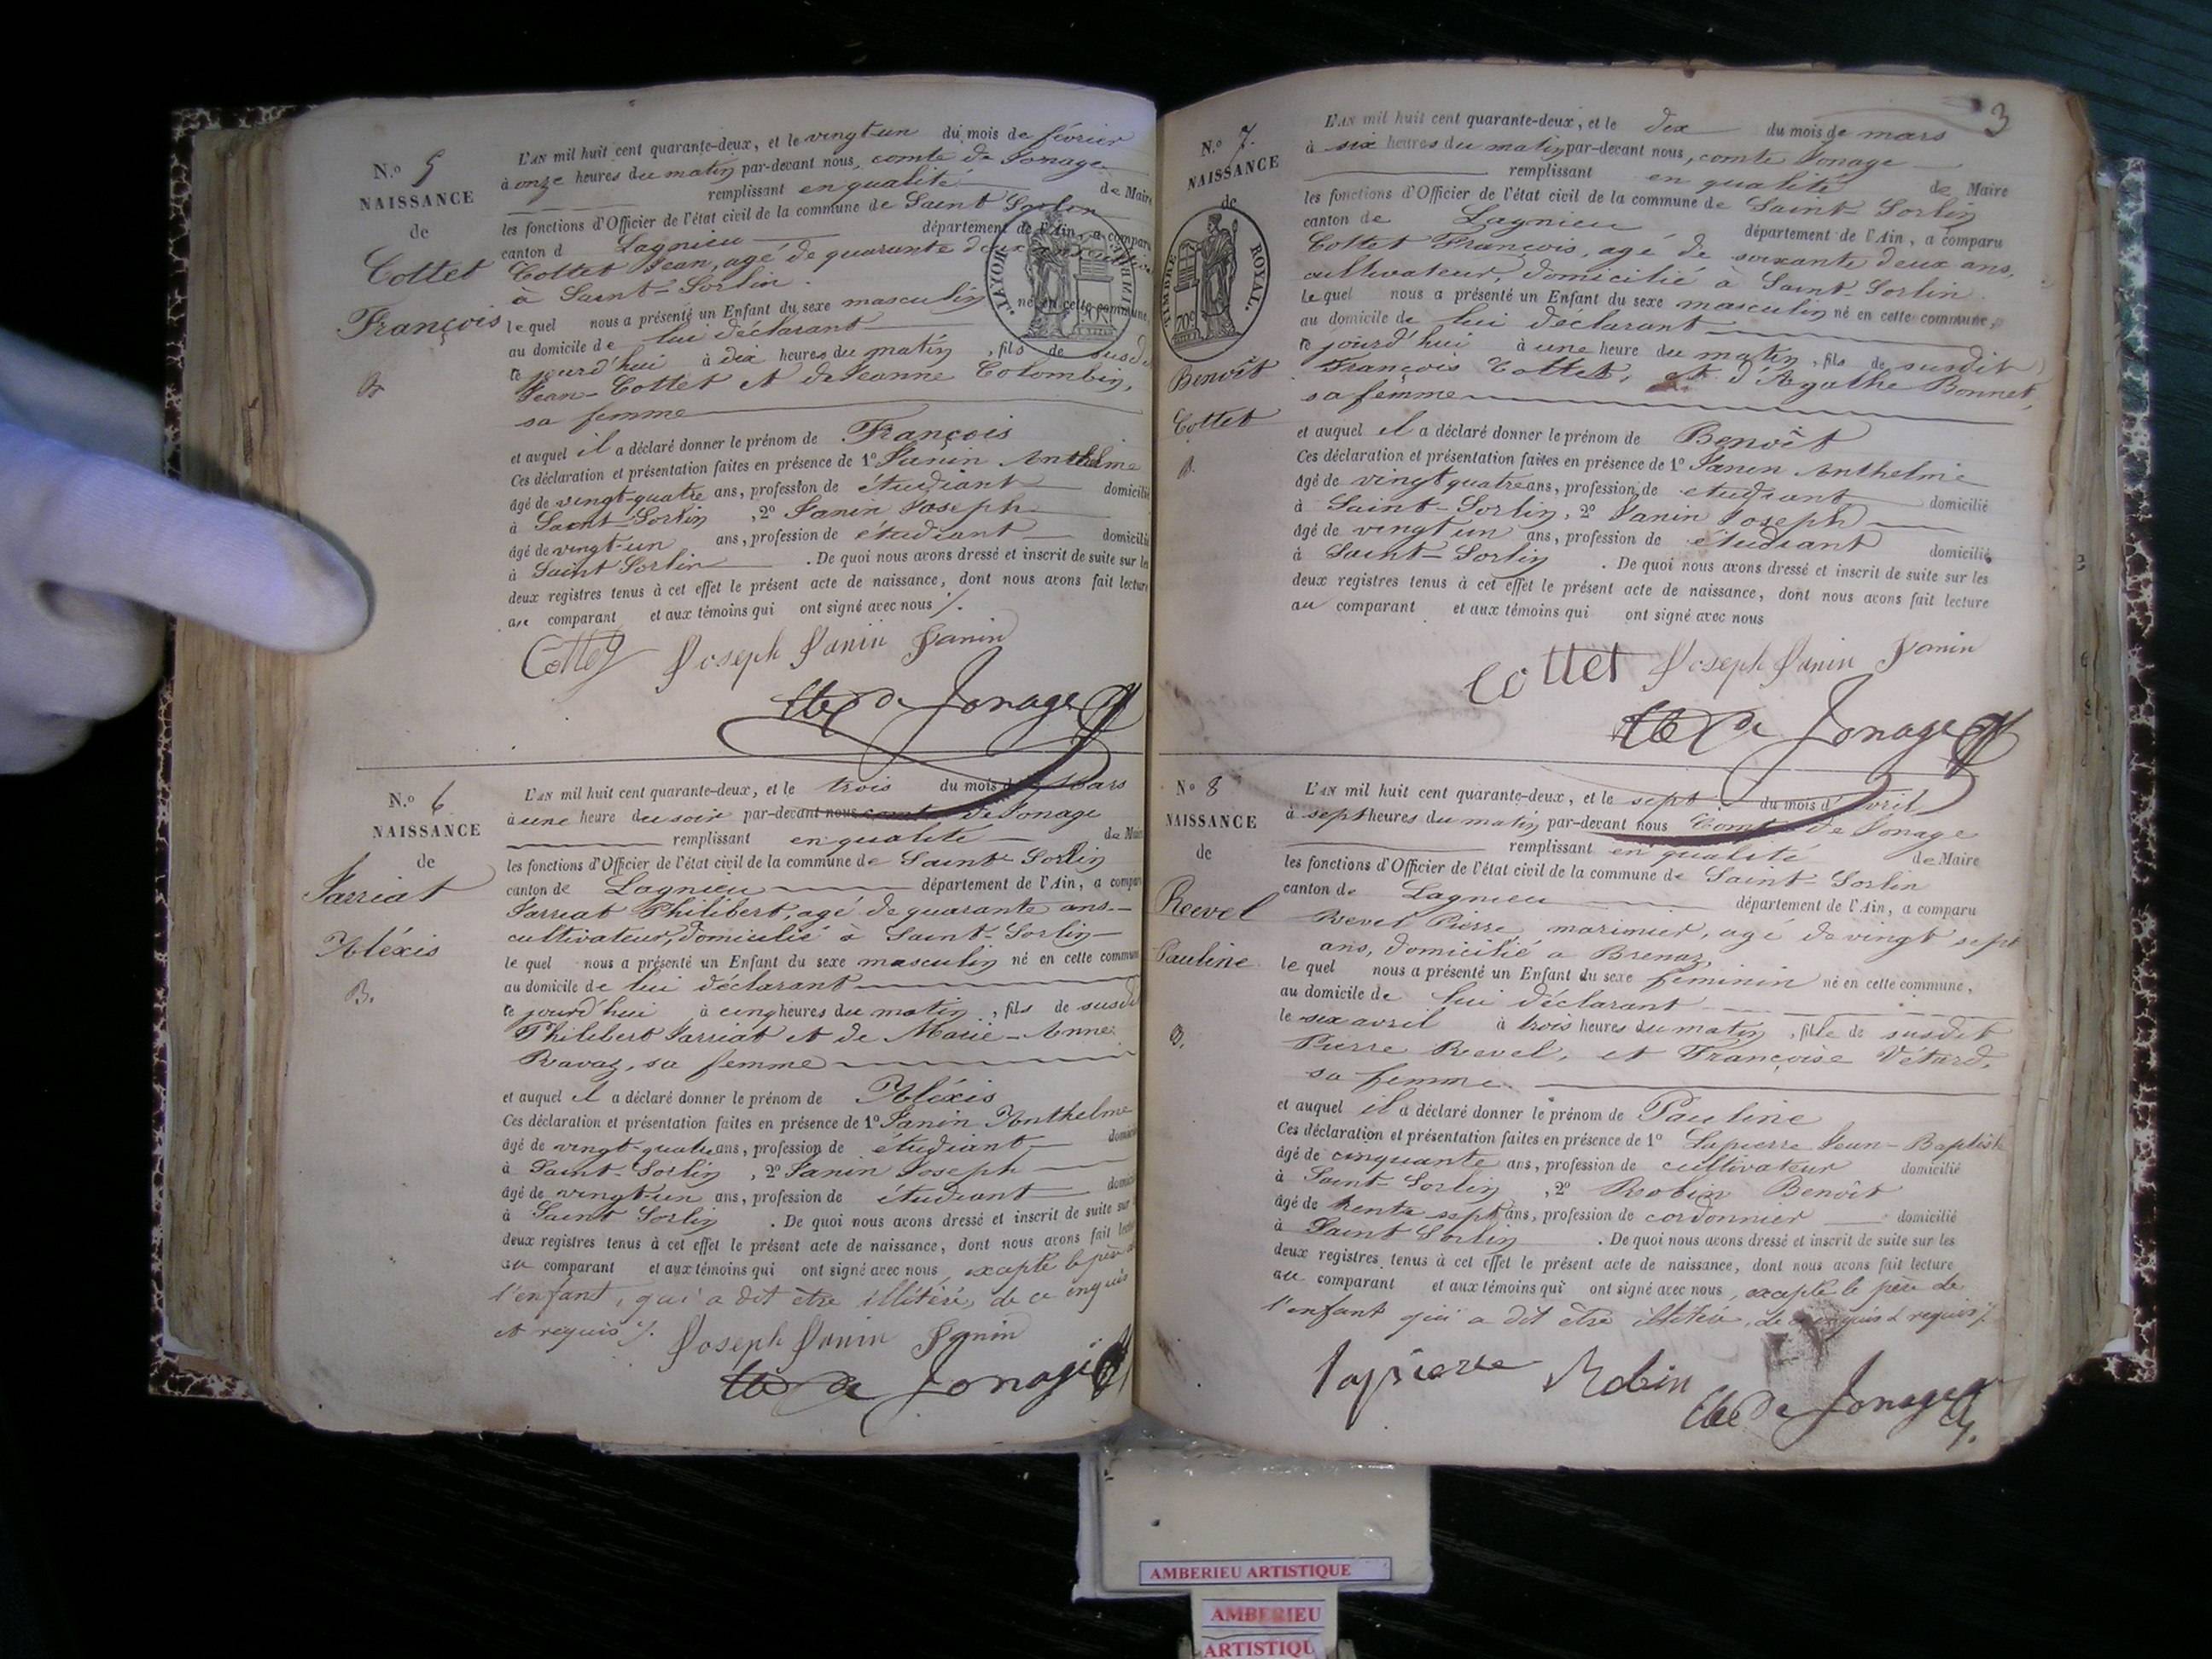 N.º 5
NAISSANCE
de
Cottet
François
B
L'AN mil huit cent quarante-deux, et le vingt-un du mois de février
à onze heures du matin par-devant nous, comte de Jonage
remplissant en qualité de Maire
les fonctions d'Officier de l'état civil de la commune de Saint Sorlin
canton d Lagnieu département de l'Ain, a comparu
Cottet Jean, agé de quarante deux ans
à Saint-Sorlin.
le quel nous a présenté un Enfant du sexe masculin né en cette commune,
au domicile de lui déclarant
ce jourd'hui à dix heures du matin, fils de susdit
Jean-Cottet et de Jeanne Colombin,
sa femme
et auquel il a déclaré donner le prénom de François
Ces déclaration et présentation faites en présence de 1º Janin Anthelme
âgé de vingt-quatre ans, profession de étudiant domicilié
à Saint-Sorlin, 2º Janin Joseph
âgé de vingt-un ans, profession de étudiant domicilié
à Saint Sorlin. De quoi nous avons dressé et inscrit de suite sur les
deux registres tenus à cet effet le présent acte de naissance, dont nous avons fait lecture
au comparant et aux témoins qui ont signé avec nous /.
Cottet Joseph Janin Janin
Cte de Jonage
N.º 6
NAISSANCE
de
Jarriat
Aléxis
B.
L'AN mil huit cent quarante-deux, et le trois du mois de Mars
à une heure du soir par-devant nous comte de Jonage
remplissant en qualité de Maire
les fonctions d'Officier de l'état civil de la commune de Saint-Sorlin
canton de Lagnieu département de l'Ain, a comparu
Jarriat Philibert, agé de quarante ans
cultivateur, domicilié à Saint-Sorlin
le quel nous a présenté un Enfant du sexe masculin né en cette commune
au domicile de lui déclarant
ce jourd'hui à cinq heures du matin, fils de susdit
Philibert Jarriat et de Marie-Anne
Ravaz, sa femme
et auquel il a déclaré donner le prénom de Aléxis
Ces déclaration et présentation faites en présence de 1º Janin Anthelme
âgé de vingt-quatre ans, profession de étudiant domicilié
à Saint-Sorlin, 2º Janin Joseph
âgé de vingt-un ans, profession de étudiant domicilié
à Saint Sorlin. De quoi nous avons dressé et inscrit de suite sur
deux registres tenus à cet effet le présent acte de naissance, dont nous avons fait lecture
au comparant et aux témoins qui ont signé avec nous excepté le père de
l'enfant, qui a dit être illitéré, de ce enquis
et requis /. Joseph Janin Janin
Cte de Jonage
TIMBRE ROYAL.
TIMBRE ROYAL.
70c
3
N.º 7.
NAISSANCE
de
Benoît
Cottet
B.
L'AN mil huit cent quarante-deux, et le dix du mois de mars
à six heures du matin par-devant nous, comte Jonage
remplissant en qualité de Maire
les fonctions d'Officier de l'état civil de la commune de Saint-Sorlin
canton de Lagnieu département de l'Ain, a comparu
Cottet François, agé de soixante deux ans,
cultivateur, domicilié à Saint-Sorlin.
le quel nous a présenté un Enfant du sexe masculin né en cette commune,
au domicile de lui déclarant
ce jourd'hui à une heure du matin, fils de susdit
François Cottet, et d'Agathe Bonnet,
sa femme
et auquel il a déclaré donner le prénom de Benoît
Ces déclaration et présentation faites en présence de 1º Janin Anthelme
âgé de vingt quatre ans, profession de étudiant domicilié
à Saint-Sorlin, 2º Janin Joseph
âgé de vingt un ans, profession de étudiant domicilié
à Saint-Sorlin. De quoi nous avons dressé et inscrit de suite sur les
deux registres tenus à cet effet le présent acte de naissance, dont nous avons fait lecture
au comparant et aux témoins qui ont signé avec nous
Cottet Joseph Janin Janin
Cte de Jonage
Nº 8
NAISSANCE
de
Revel
Pauline
B.
L'AN mil huit cent quarante-deux, et le sept du mois d'avril
à sept heures du matin par-devant nous Comte de Jonage
remplissant en qualité de Maire
les fonctions d'Officier de l'état civil de la commune de Saint-Sorlin
canton de Lagnieu département de l'Ain, a comparu
Revel Pierre marinier, agé de vingt sept
ans, domicilié a Brenaz,
le quel nous a présenté un Enfant du sexe féminin né en cette commune,
au domicile de lui déclarant
le six avril à trois heures du matin, fille de susdit
Pierre Revel, et Françoise Vétard,
sa femme.
et auquel il a déclaré donner le prénom de Pauline
Ces déclaration et présentation faites en présence de 1º Lapierre Jean-Baptiste
âgé de cinquante ans, profession de cultivateur domicilié
à Saint-Sorlin, 2º Robin Benoît
âgé de trente sept ans, profession de cordonnier domicilié
à Saint Sorlin. De quoi nous avons dressé et inscrit de suite sur les
deux registres tenus à cet effet le présent acte de naissance, dont nous avons fait lecture
au comparant et aux témoins qui ont signé avec nous, excepté le père de
l'enfant qui a dit être illitéré, de ce enquis et requis /.
lapierre Robin
Cte de Jonage
AMBERIEU ARTISTIQUE
AMBERIEU
ARTISTIQU